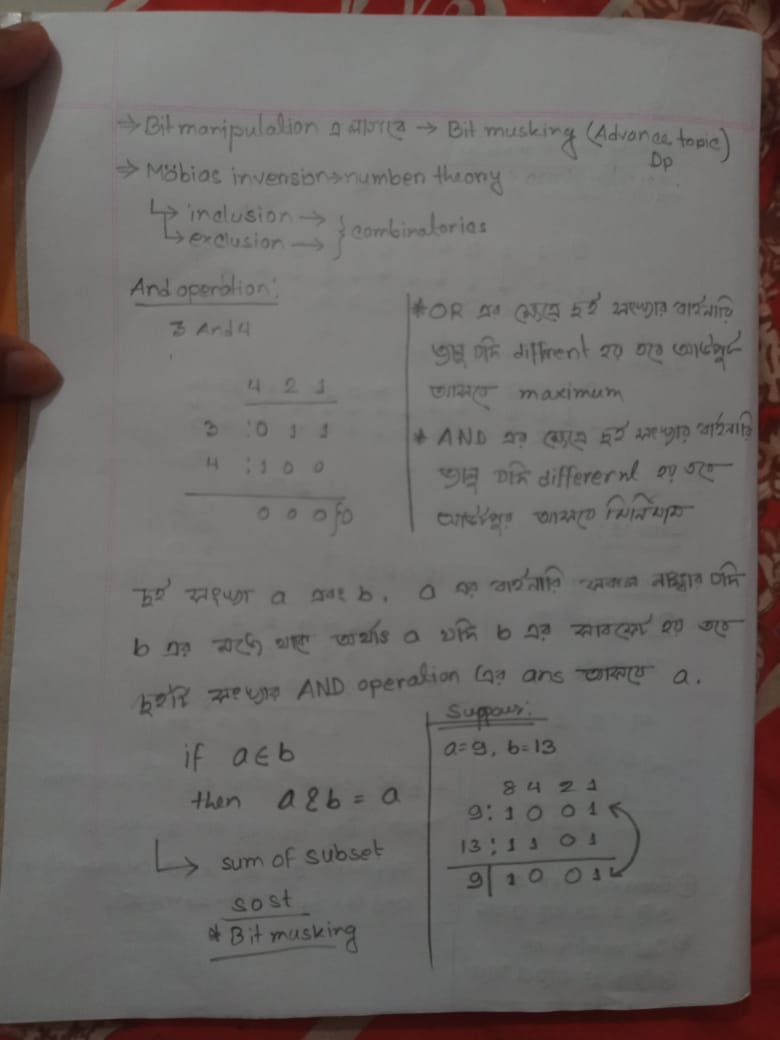 ⇒ Bit manipulation এ লাগবে → Bit musking (Advance topic)
Dp
⇒ Möbias invension→number theory
↳ inclusion →
↳ exclusion → } combinatorias
And operation:
3 And 4
4 2 1
3 : 0 1 1
4 : 1 0 0
0 0 0 = 0
* OR এর ক্ষেত্রে দুই সংখ্যার বাইনারি
ভ্যালু যদি diffrent হয় তবে আউটপুট
আসবে maximum
* AND এর ক্ষেত্রে দুই সংখ্যার বাইনারি
ভ্যালু যদি differernt হয় তবে
আউটপুট আসবে মিনিমাম
দুই সংখ্যা a এবং b. a এর বাইনারি সকল নাম্বার যদি
b এর মধ্যে থাকে অর্থাৎ a যদি b এর সাবসেট হয় তবে
দুইটি সংখ্যার AND operation এর ans আসবে a.
if a ∈ b
then a & b = a
↳ sum of subset
sost
* Bit musking
Suppous:
a=9, b=13
8 4 2 1
9 : 1 0 0 1
13 : 1 1 0 1
9 | 1 0 0 1